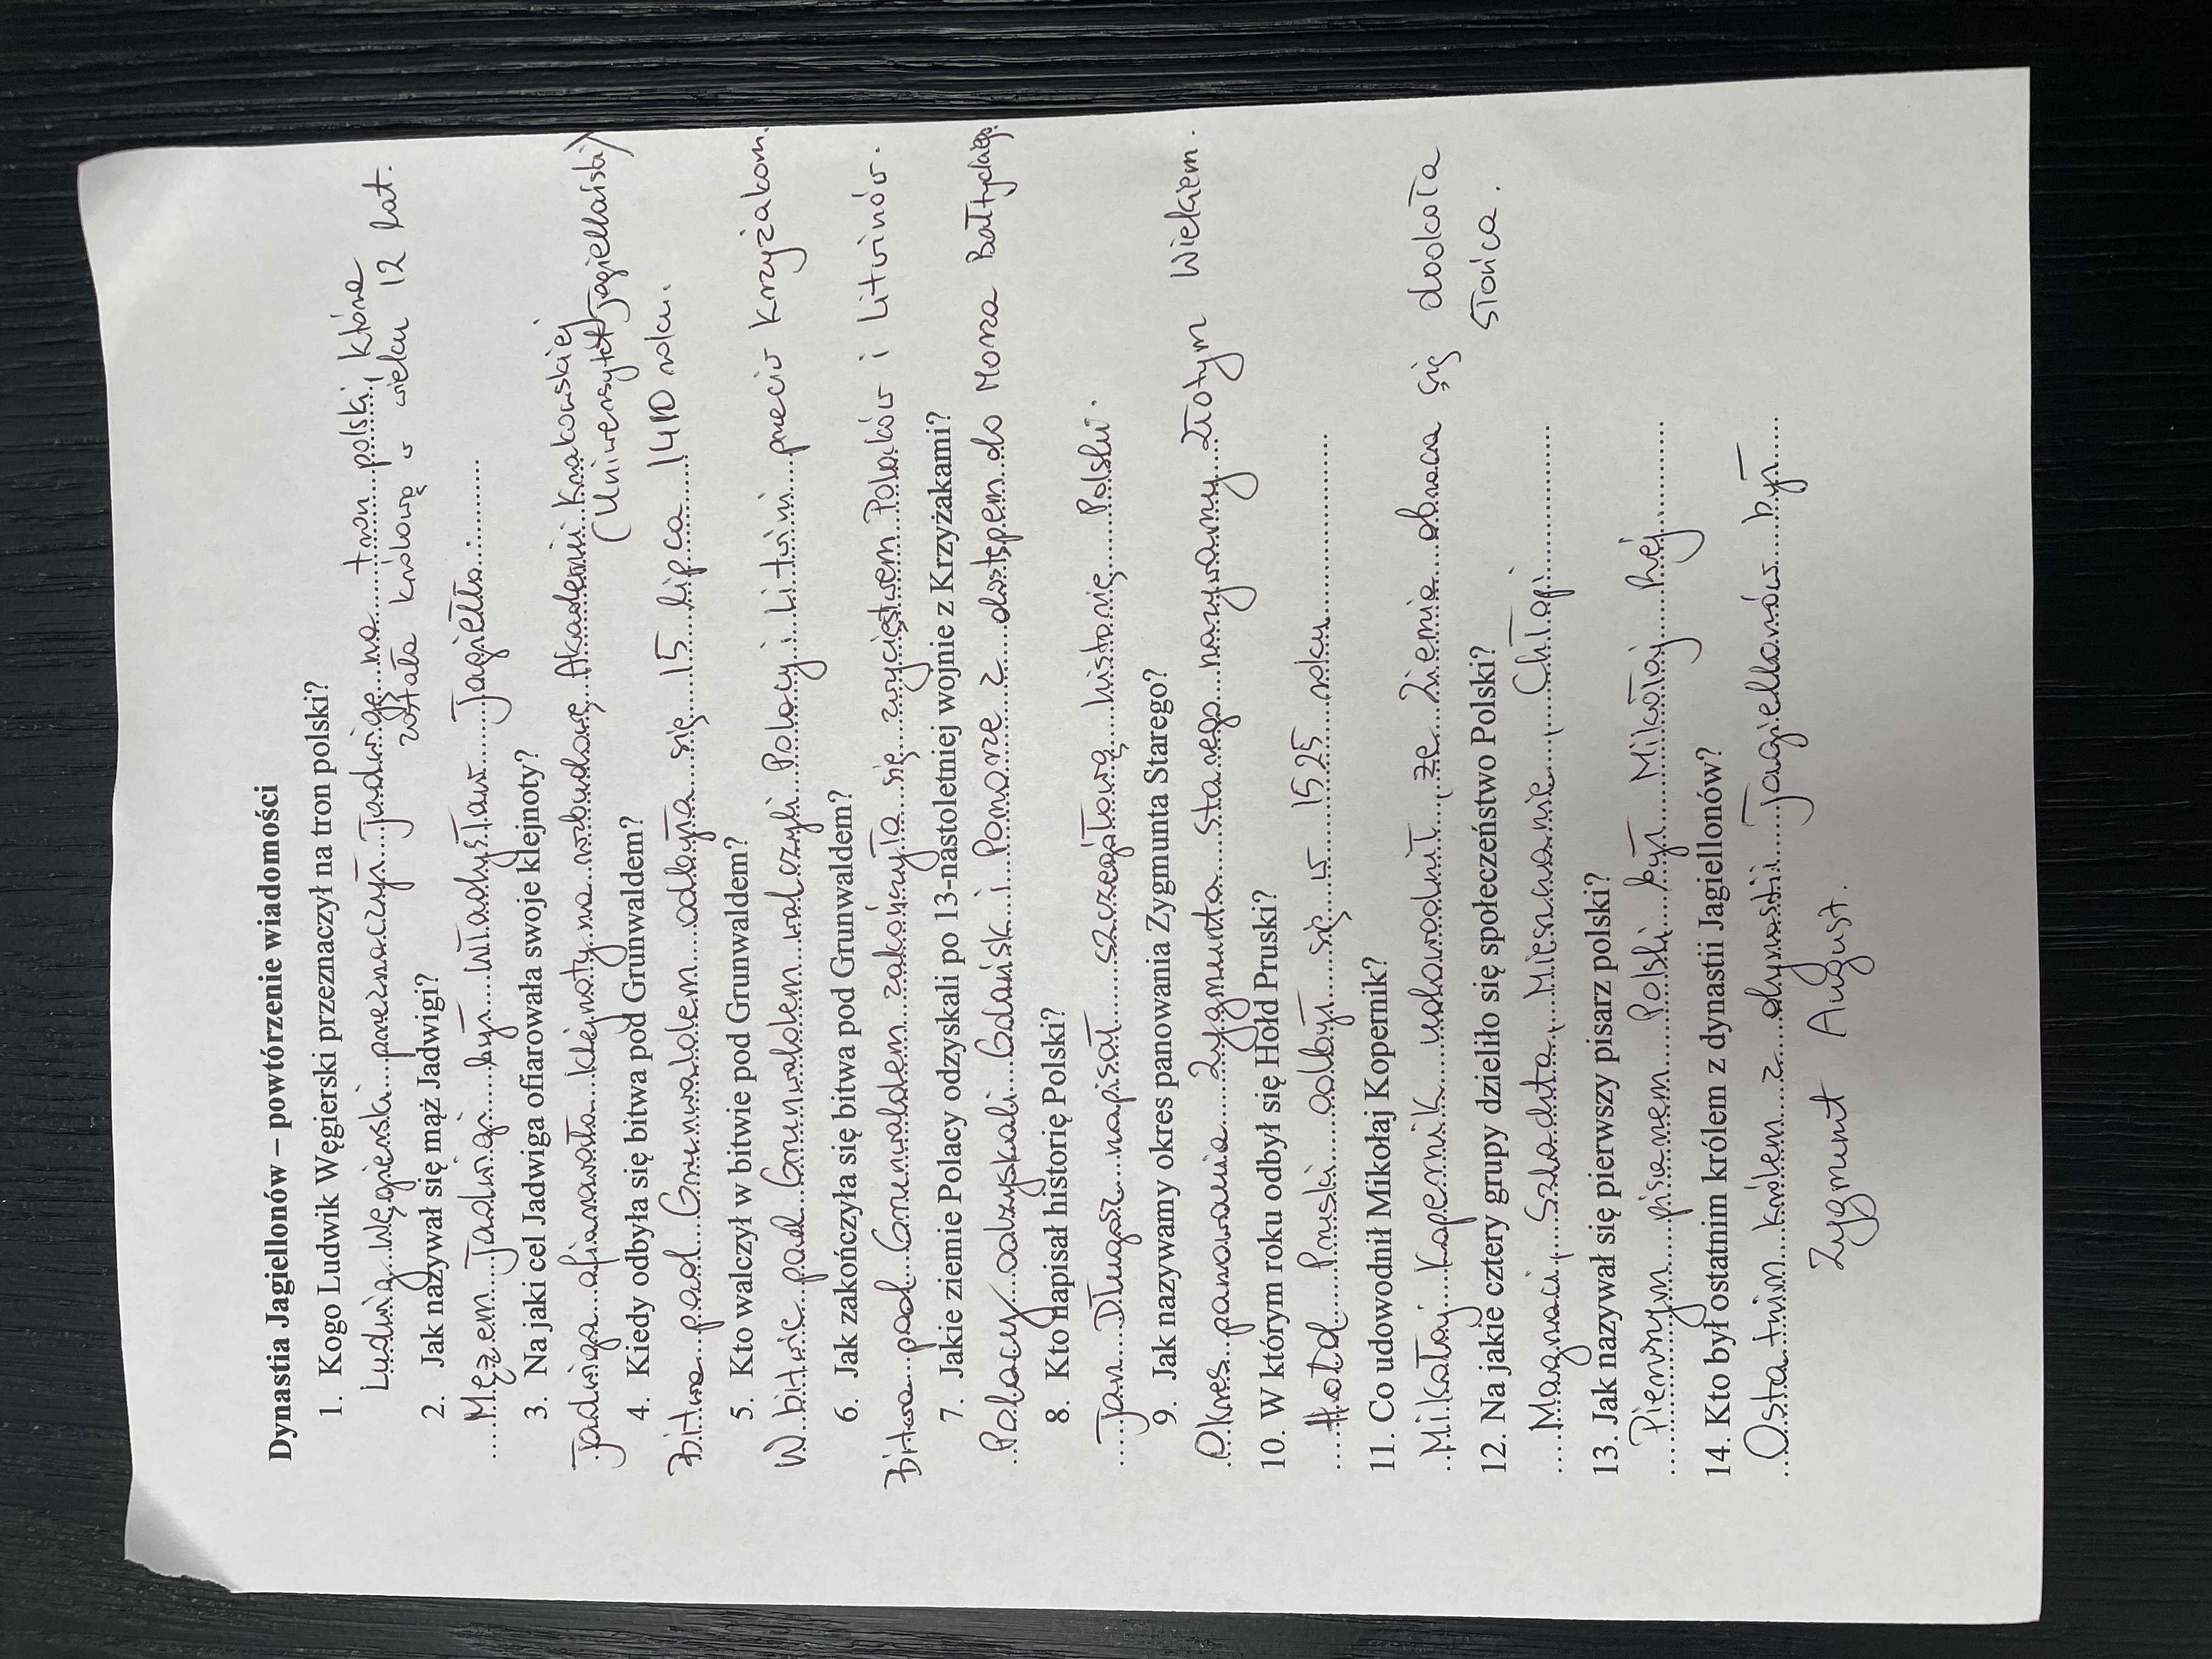 Dynastia Jagiellonów – powtórzenie wiadomości
1. Kogo Ludwik Węgierski przeznaczył na tron polski?
Ludwig Węgierski przeznaczył Jadwigę na tron polski, która
została królową w wieku 12 lat.
2. Jak nazywał się mąż Jadwigi?
Mężem Jadwigi był Władysław Jagiełło.
3. Na jaki cel Jadwiga ofiarowała swoje klejnoty?
Jadwiga ofiarowała klejnoty na rozbudowę Akademii Krakowskiej
(Uniwersytet Jagielloński)
4. Kiedy odbyła się bitwa pod Grunwaldem?
Bitwa pod Grunwaldem odbyła się 15 lipca 1410 roku.
5. Kto walczył w bitwie pod Grunwaldem?
W bitwie pod Grunwaldem walczyli Polacy i Litwini przeciw krzyżakom.
6. Jak zakończyła się bitwa pod Grunwaldem?
Bitwa pod Grunwaldem zakończyła się zwycięstwem Polaków i Litwinów.
7. Jakie ziemie Polacy odzyskali po 13-nastoletniej wojnie z Krzyżakami?
Polacy odzyskali Gdańsk i Pomorze z dostępem do Morza Bałtyckiego.
8. Kto napisał historię Polski?
Jan Długosz napisał szczegółową historię Polski.
9. Jak nazywamy okres panowania Zygmunta Starego?
Okres panowania Zygmunta Starego nazywamy złotym Wiekiem.
10. W którym roku odbył się Hołd Pruski?
Hołd Pruski odbył się w 1525 roku
11. Co udowodnił Mikołaj Kopernik?
Mikołaj Kopernik udowodnił, że Ziemia obraca się dookoła
słońca.
12. Na jakie cztery grupy dzieliło się społeczeństwo Polski?
Magnaci, Szlachta, Miesczanie, Chłopi
13. Jak nazywał się pierwszy pisarz polski?
Pierwszym pisarzem Polski był Mikołaj Rej
14. Kto był ostatnim królem z dynastii Jagiellonów?
Ostatnim królem z dynastii Jagiellonów był
Zygmunt August.